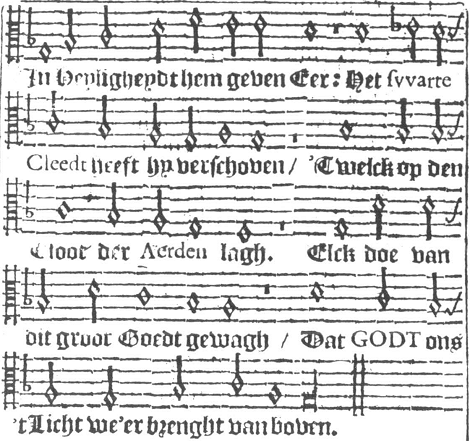 In Heyligheydt hem geven Eer: Het svvarte
Cleedt heeft hy verschoven / 'Twelck op den
Cloot der Aerden lagh. Elck doe van
dit groot Goedt gewagh / Dat GODT ons
't Licht we'er brenght van boven.